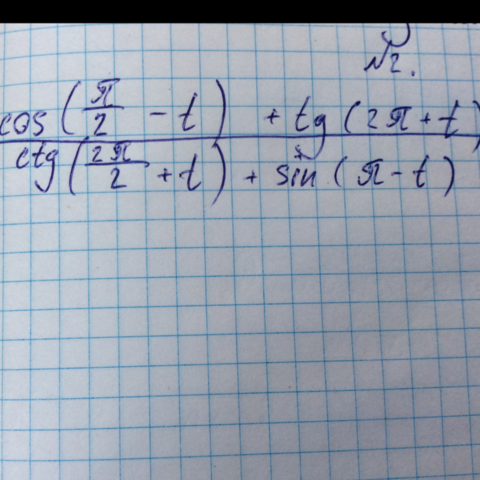 №2.
cos(π/2 - t) + tg(2π + t)
ctg(2π/2 + t) + sin(π - t)